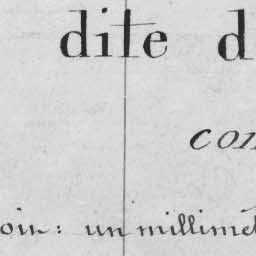 dite d
con
oin : un millimèt